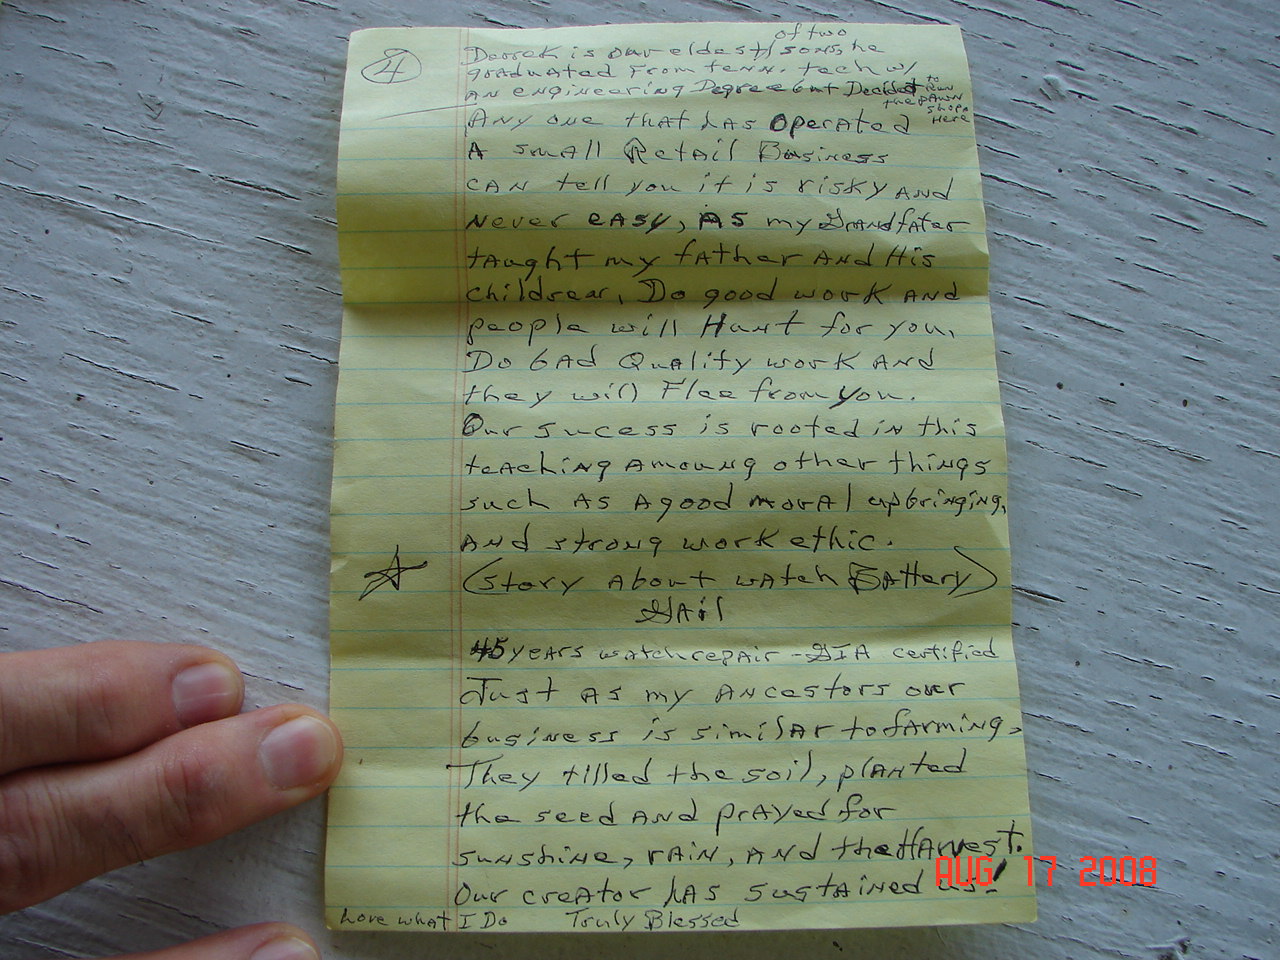 4
of two
Derrek is our eldest / sons, he
graduated from tenn. tech w/
AN engineering Degree but Decided to run
the pawn
shops
Here
Any one that has operated
A small Retail Business
CAN tell you it is risky AND
Never EASY, AS my Grandfater
taught my father AND His
childrean, Do good work AND
people will Hunt for you,
Do bad Quality work AND
they will Flee from you.
Our sucess is rooted in this
teaching amoung other things
such AS A good moral upbringing,
AND strong work ethic.
(story About watch Battery)
Gail
45 years watch repair - GIA certified
Just AS my Ancestors our
business is similar to farming,
They tilled the soil, planted
the seed AND prayed for
sunshine, rain, AND the Harvest.
Our creator has sustained us!
AUG 17 2008
Love what I Do Truly Blessed